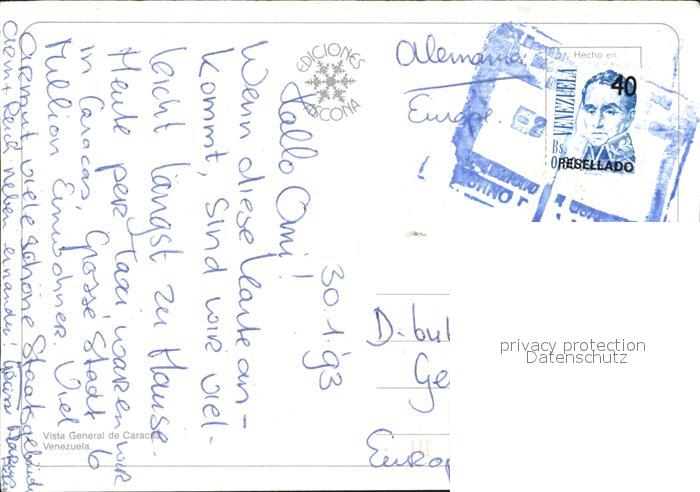 30.1.93
Hallo Omi!
Wenn diese Karte an-
kommt, sind wir viel-
leicht längst zu Hause.
Heute per Taxi waren wir
in Caracas. Grosse Stadt 6
Million Einwohner. Viel
Armut viele schöne Staatsgebäude
Arm + Reich neben einander!
EDICIONES
CONA
Vista General de Caracas
Venezuela.
Alemania
Europe.
Hecho en
VENEZUELA
40
Bs.
RESELLADO
D-
Ge
Euro
privacy protection
Datenschutz